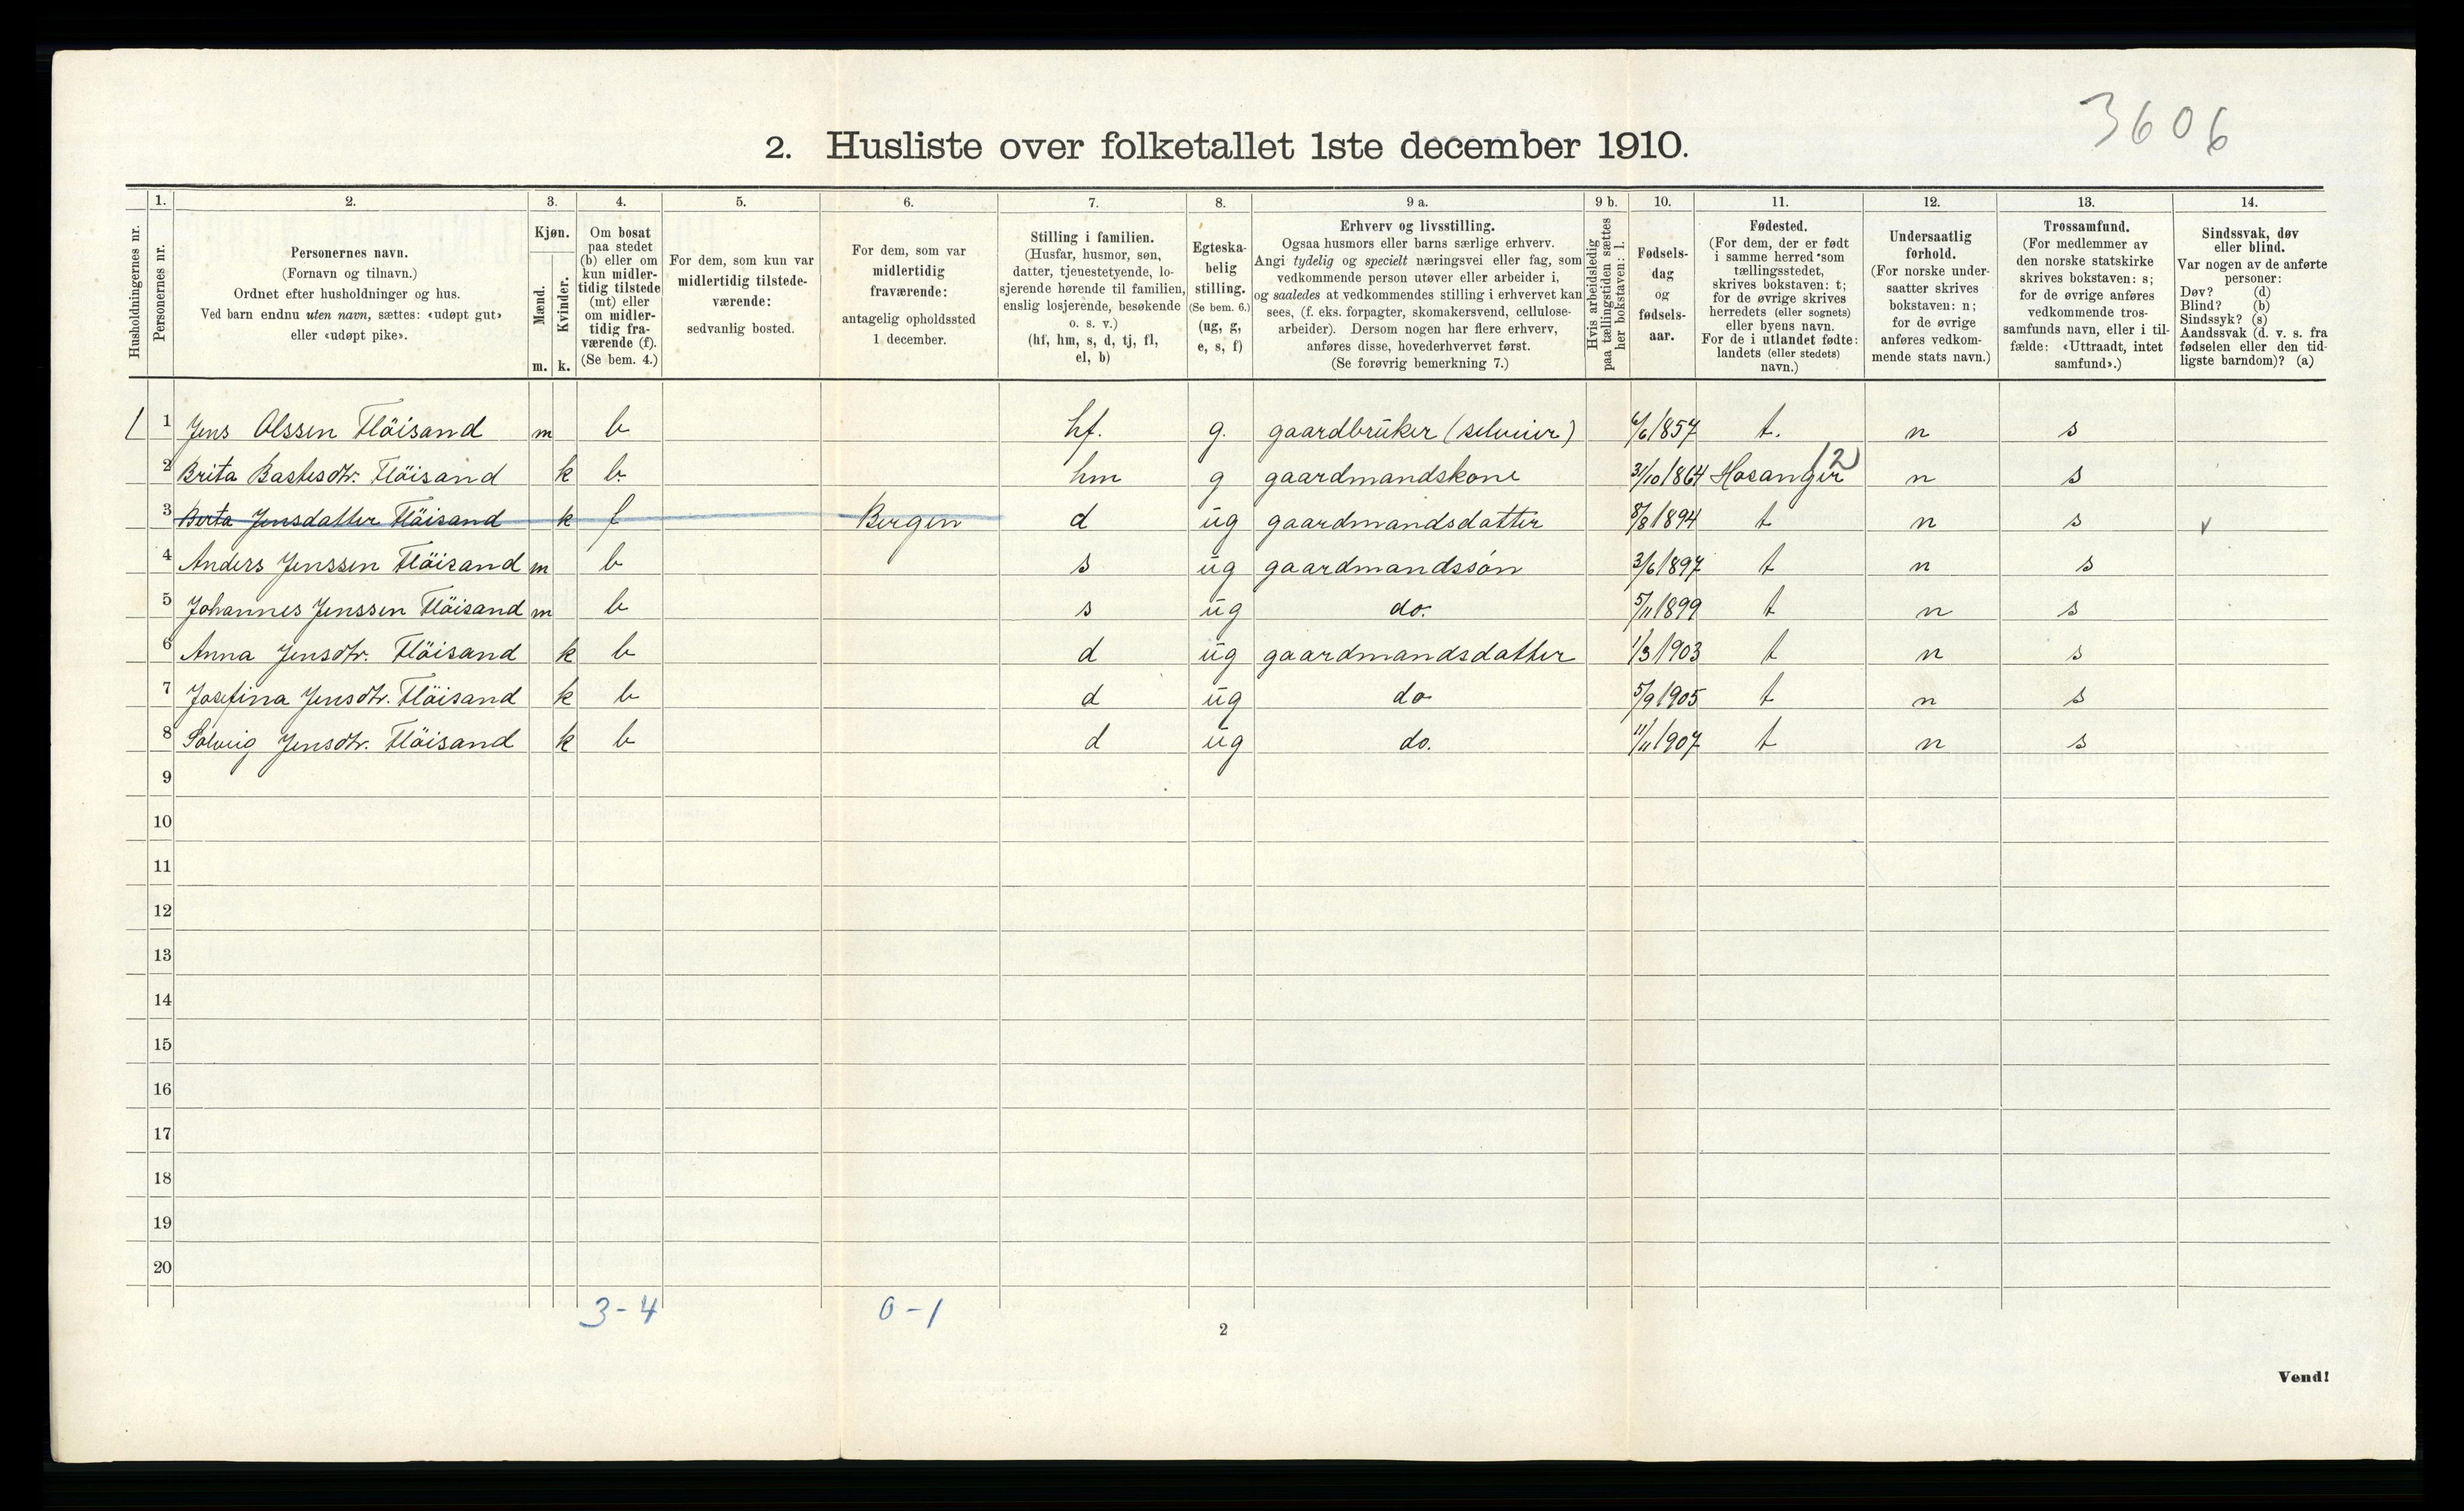 3606
2. Husliste over folketallet 1ste december 1910.
Husholdningernes nr.
1. Personernes nr.
2. Personernes navn.
(Fornavn og tilnavn.)
Ordnet efter husholdninger og hus.
Ved barn endnu uten navn, sættes: «udøpt gut»
eller «udøpt pike».
3. Kjøn.
Mænd. Kvinder.
m. k.
4. Om bosat
paa stedet
(b) eller om
kun midler-
tidig tilstede
(mt) eller
om midler-
tidig fra-
værende (f).
(Se bem. 4.)
5. For dem, som kun var
midlertidig tilstede-
værende:
sedvanlig bosted.
6. For dem, som var
midlertidig
fraværende:
antagelig opholdssted
1 december.
7. Stilling i familien.
(Husfar, husmor, søn,
datter, tjenestetyende, lo-
sjerende hørende til familien,
enslig losjerende, besøkende
o. s. v.)
(hf, hm, s, d, tj, fl,
el, b)
8. Egteska-
belig
stilling.
(Se bem. 6.)
(ug, g,
e, s, f)
9 a. Erhverv og livsstilling.
Ogsaa husmors eller barns særlige erhverv.
Angi tydelig og specielt næringsvei eller fag, som
vedkommende person utøver eller arbeider i,
og saaledes at vedkommendes stilling i erhvervet kan
sees, (f. eks. forpagter, skomakersvend, cellulose-
arbeider). Dersom nogen har flere erhverv,
anføres disse, hovederhvervet først.
(Se forøvrig bemerkning 7.)
9 b. Hvis arbeidsledig
paa tællingstiden sættes
her bokstaven: l.
10. Fødsels-
dag
og
fødsels-
aar.
11. Fødested.
(For dem, der er født
i samme herred som
tællingsstedet,
skrives bokstaven: t;
for de øvrige skrives
herredets (eller sognets)
eller byens navn.
For de i utlandet fødte:
landets (eller stedets)
navn.)
12. Undersaatlig
forhold.
(For norske under-
saatter skrives
bokstaven: n;
for de øvrige
anføres vedkom-
mende stats navn.)
13. Trossamfund.
(For medlemmer av
den norske statskirke
skrives bokstaven: s;
for de øvrige anføres
vedkommende tros-
samfunds navn, eller i til-
fælde: «Uttraadt, intet
samfund».)
14. Sindssvak, døv
eller blind.
Var nogen av de anførte
personer:
Døv? (d)
Blind? (b)
Sindssyk? (s)
Aandssvak (d. v. s. fra
fødselen eller den tid-
ligste barndom)? (a)
1 1 Jens Olssen Fløisand m b hf. g. gaardbruker (selveier) 6/6 1857 t. n s
2 Brita Bastesdtr. Fløisand k b. hm g gaardmandskone 31/10 1864 Hosanger 12 n s
3 Berta Jensdatter Fløisand k f Bergen d ug gaardmandsdatter 8/8 1894 t n s v
4 Anders Jenssen Fløisand m b s ug gaardmandssøn 3/6 1897 t n s
5 Johannes Jenssen Fløisand m b s ug do. 5/11 1899 t n s
6 Anna Jensdtr. Fløisand k b d ug gaardmandsdatter 1/3 1903 t n s
7 Josefina Jensdtr. Fløisand k b d ug do 5/9 1905 t n s
8 Solveig Jensdtr. Fløisand k b d ug do. 11/11 1907 t n s
9
10
11
12
13
14
15
16
17
18
19
20
3-4 0-1
2
Vend!